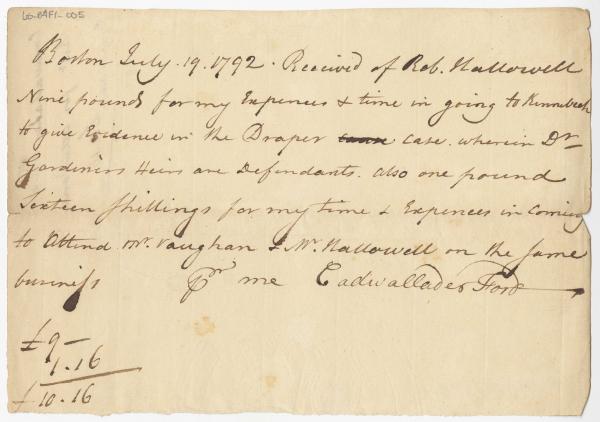 LG-BAF1-005
Boston July. 19. 1792. Received of Rob. Hallowell
Nine pounds for my Expences & time in going to Kennebeck
to give Evidence in the Draper case. wherein Dr
Gardiners Heirs are Defendants. also one pound
Sixteen shillings for my time & Expences in coming
to Attend Mr. Vaughan & Mr. Hallowell on the same
business pr me Cadwallader Ford
£9 —
1.16
£10.16